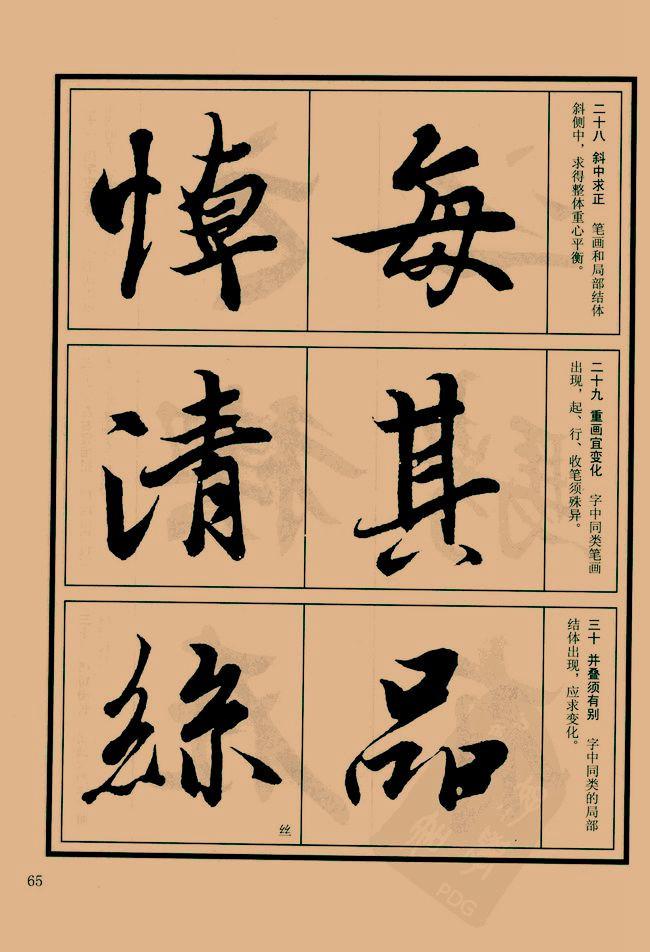 二十八 斜中求正 笔画和局部结体
斜侧中，求得整体重心平衡。
每
悼
二十九 重画宜变化 字中同类笔画
出现，起、行、收笔须殊异。
其
清
三十 并叠须有别 字中同类的局部
结体出现，应求变化。
品
絲
丝
65
PDG